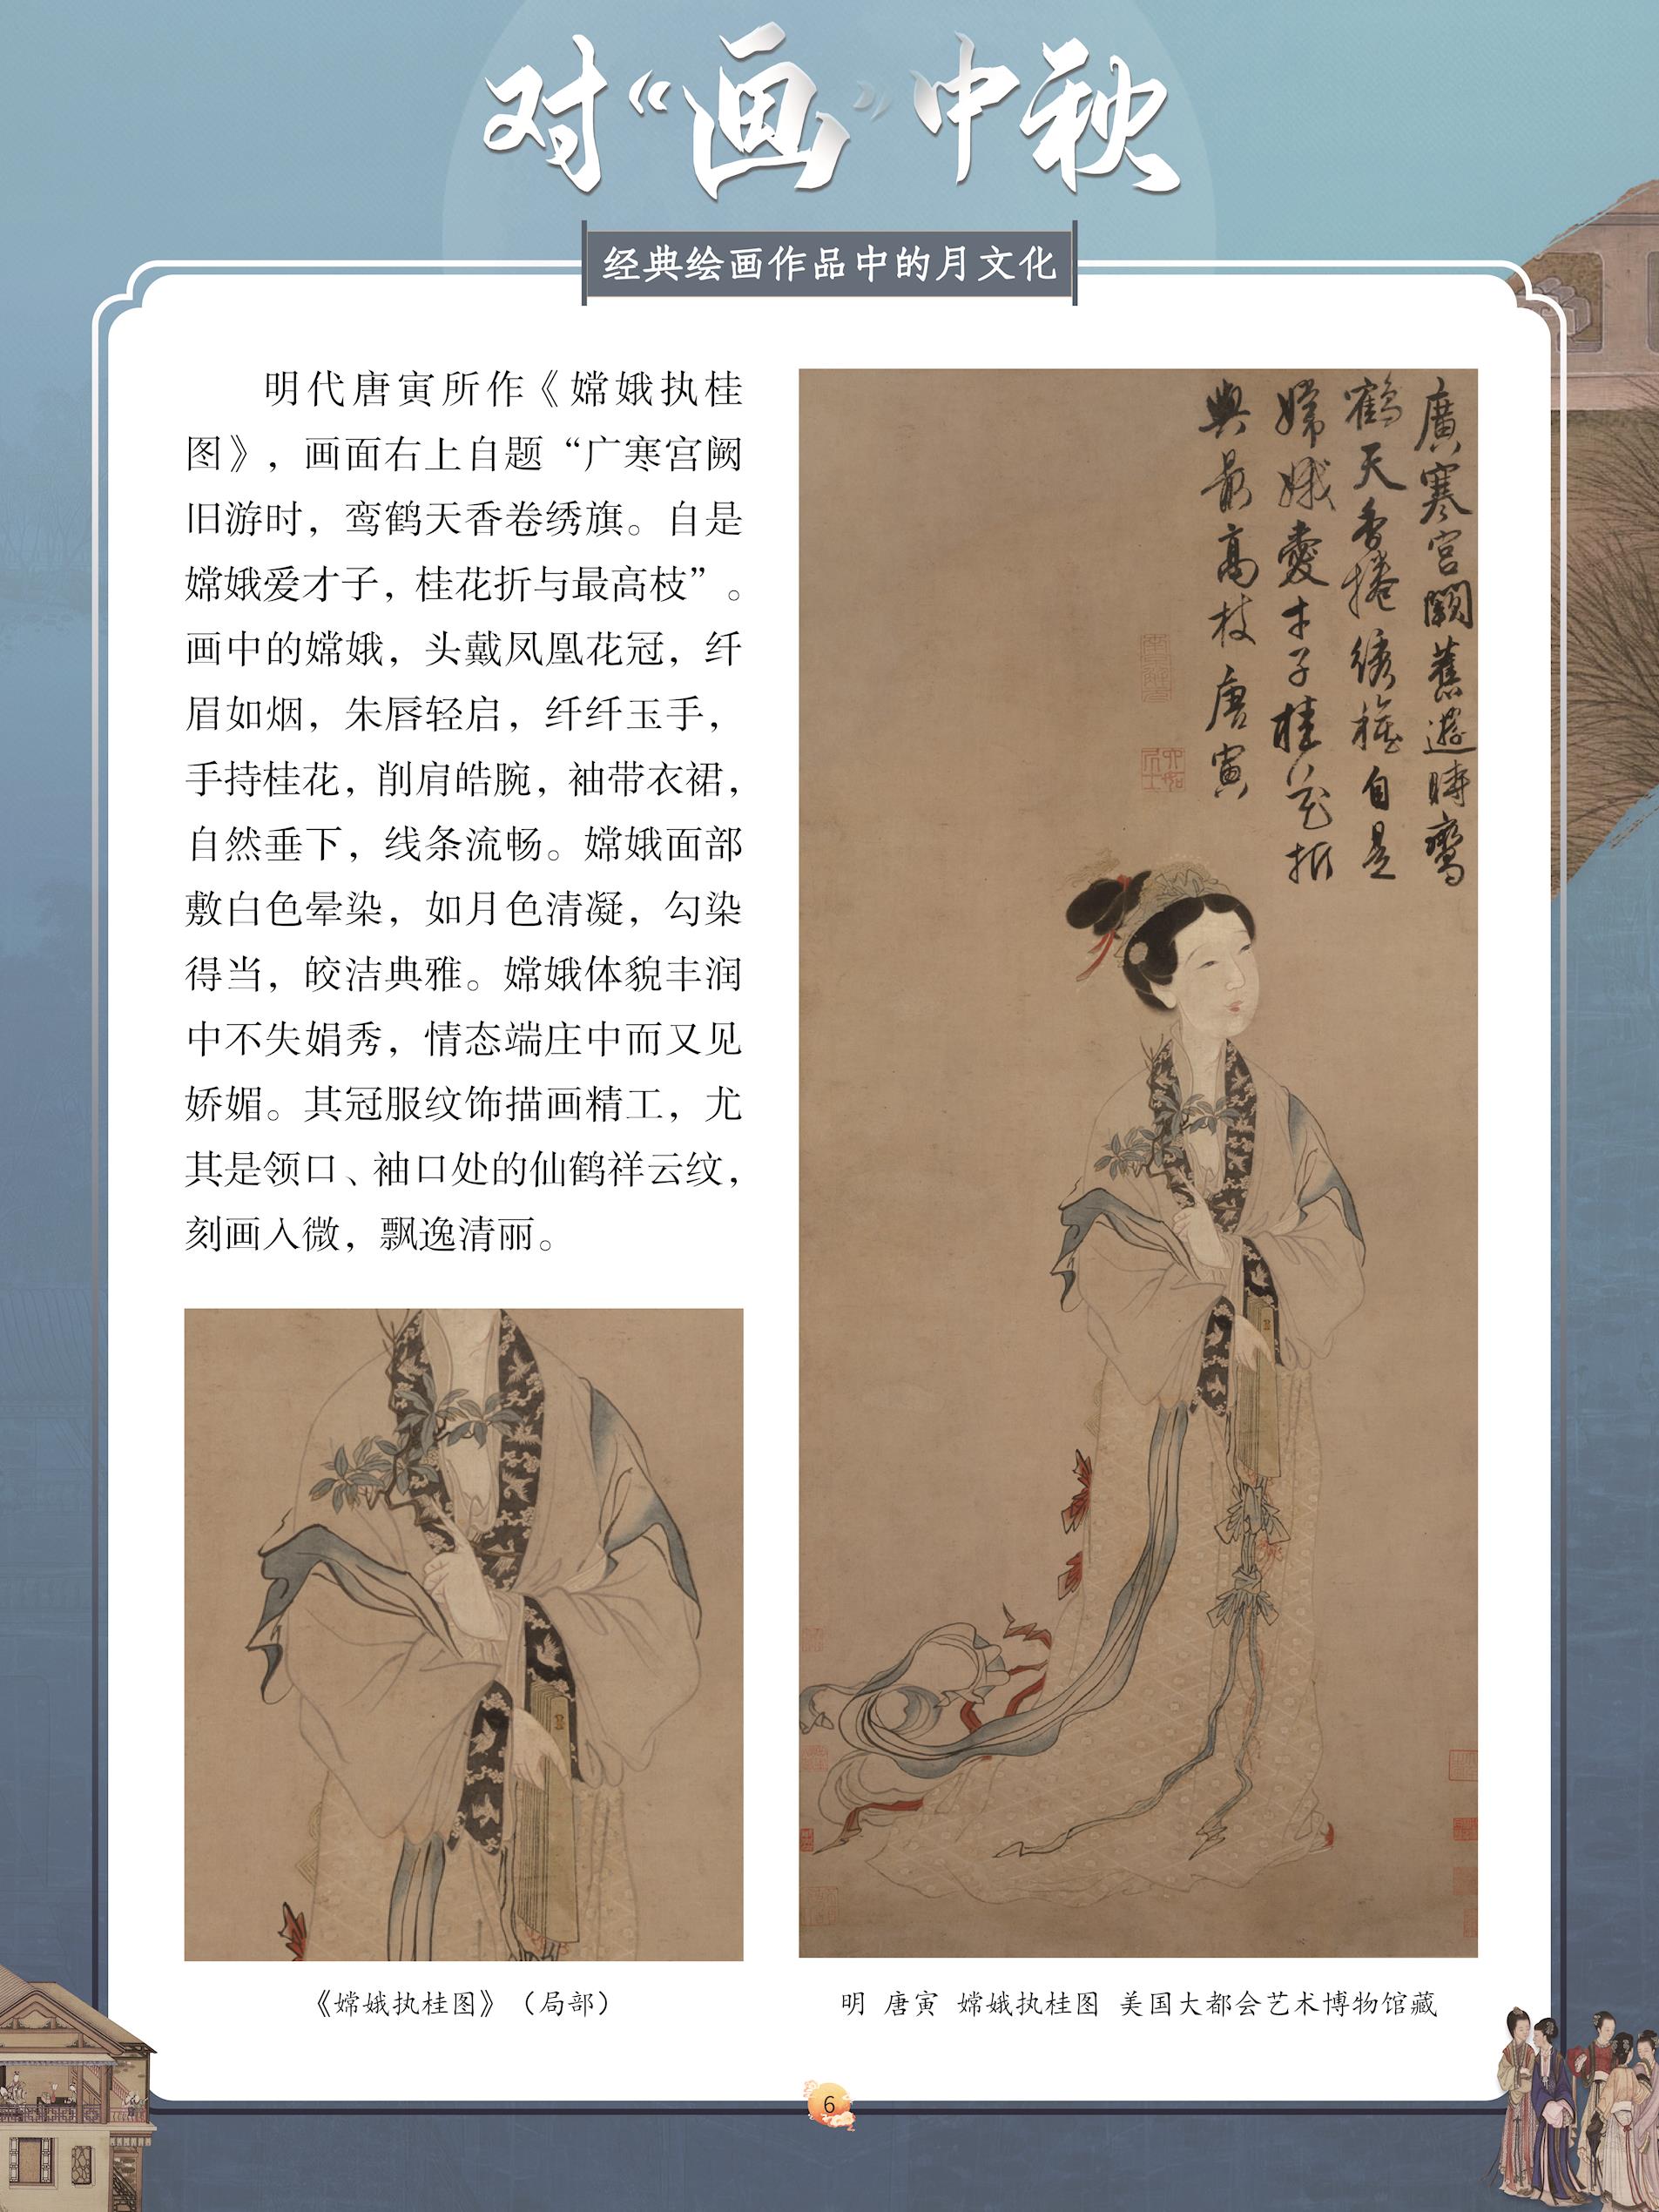 对“画”中秋
经典绘画作品中的月文化
明代唐寅所作《嫦娥执桂
图》，画面右上自题“广寒宫阙
旧游时，鸾鹤天香卷绣旗。自是
嫦娥爱才子，桂花折与最高枝”。
画中的嫦娥，头戴凤凰花冠，纤
眉如烟，朱唇轻启，纤纤玉手，
手持桂花，削肩皓腕，袖带衣裙，
自然垂下，线条流畅。嫦娥面部
敷白色晕染，如月色清凝，勾染
得当，皎洁典雅。嫦娥体貌丰润
中不失娟秀，情态端庄中而又见
娇媚。其冠服纹饰描画精工，尤
其是领口、袖口处的仙鹤祥云纹，
刻画入微，飘逸清丽。
《嫦娥执桂图》（局部）
廣寒宮闕舊遊時鸞
鶴天香捲繡旗自是
嫦娥愛才子桂花折
與最高枝唐寅
明 唐寅 嫦娥执桂图 美国大都会艺术博物馆藏
6